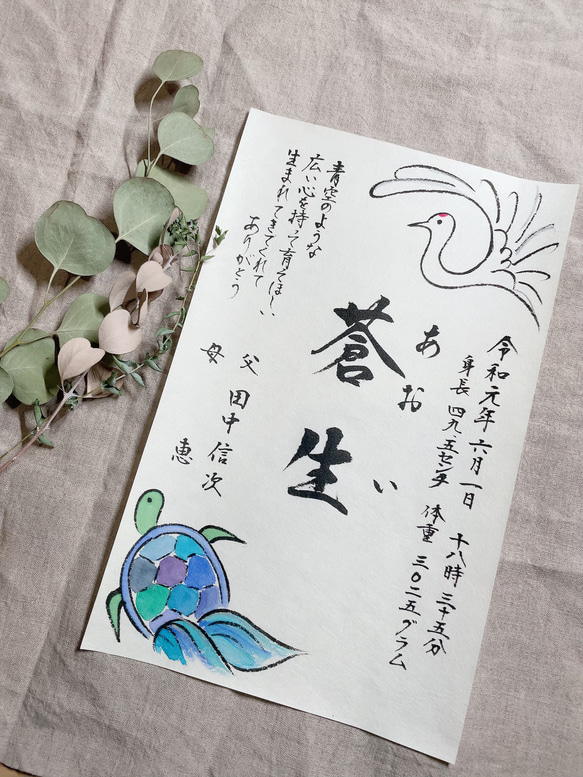 令和元年 六月一日 十八時 三十五分
身長 四九.五センチ 体重 三〇二五グラム
あおい
蒼生
青空のような
広い心を持って育ってほしい
生まれてきてくれて
ありがとう
父 田中信次
母 恵